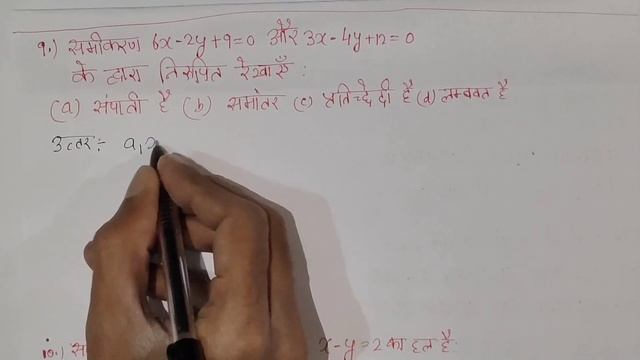 9.) समीकरण 6x-2y+9=0 और 3x-4y+12=0
के द्वारा निरूपित रेखाएँ :
(a) संपाती है (b) समांतर (c) प्रतिच्छेदी है (d) लम्बवत है
उत्तर:- a₁
10.) x-y=2 का हल है